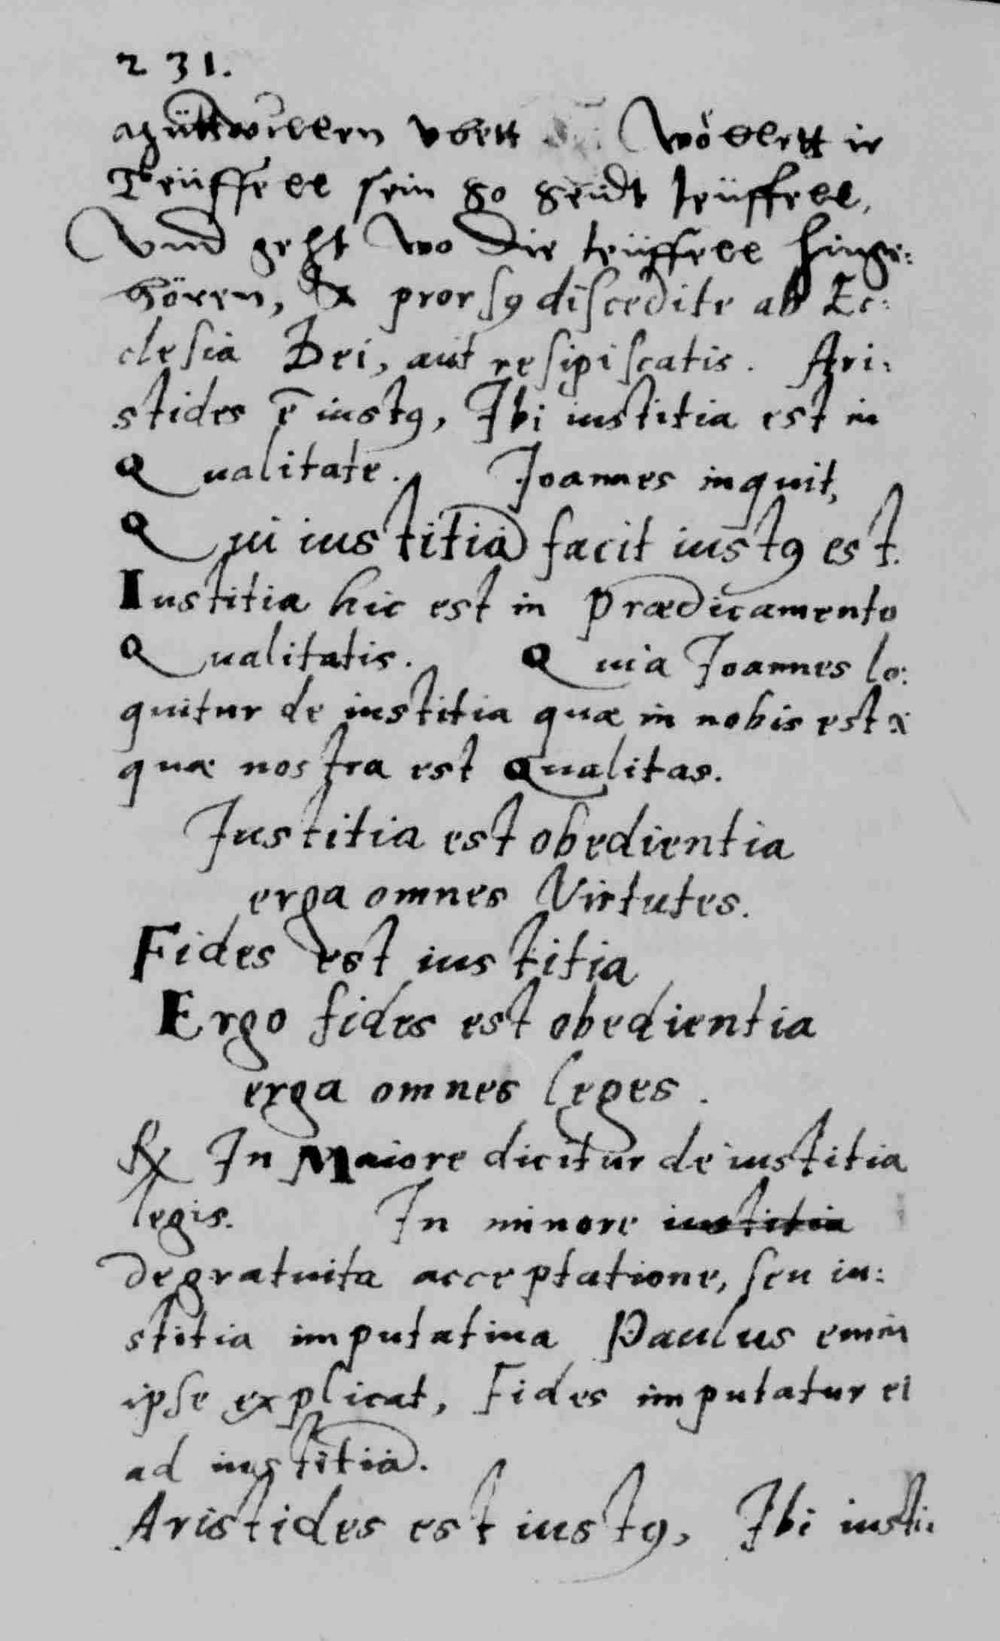 231.
müttwillen vbett Wöllett ir
Teüffell sein so seidt teüffell,
Vnd geht wo die teüffell hinge:
hören, & prorsꝰ discedite ab Ec:
clesia Dei, aut resipiscatis. Ari:
stides ē iustꝰ, Ibi iustitia est in
Qualitate. Joannes inquit,
Qui iustitiā facit iustꝰ est.
Iustitia hic est in prædicamento
Qualitatis. Quia Joannes lo:
quitur de iustitia quæ in nobis est &
quæ nostra est Qualitas.
Justitia est obedientia
erga omnes Virtutes.
Fides est iustitia
Ergo fides est obedientia
erga omnes leges.
℞ In Maiore dicitur de iustitia
legis. In minore iustitia
de gratuita acceptatione, seu iu:
stitia imputatiua Paulus enim
ipse explicat, Fides imputatur ei
ad iustitiā.
Aristides est iustꝰ, Ibi iusti: